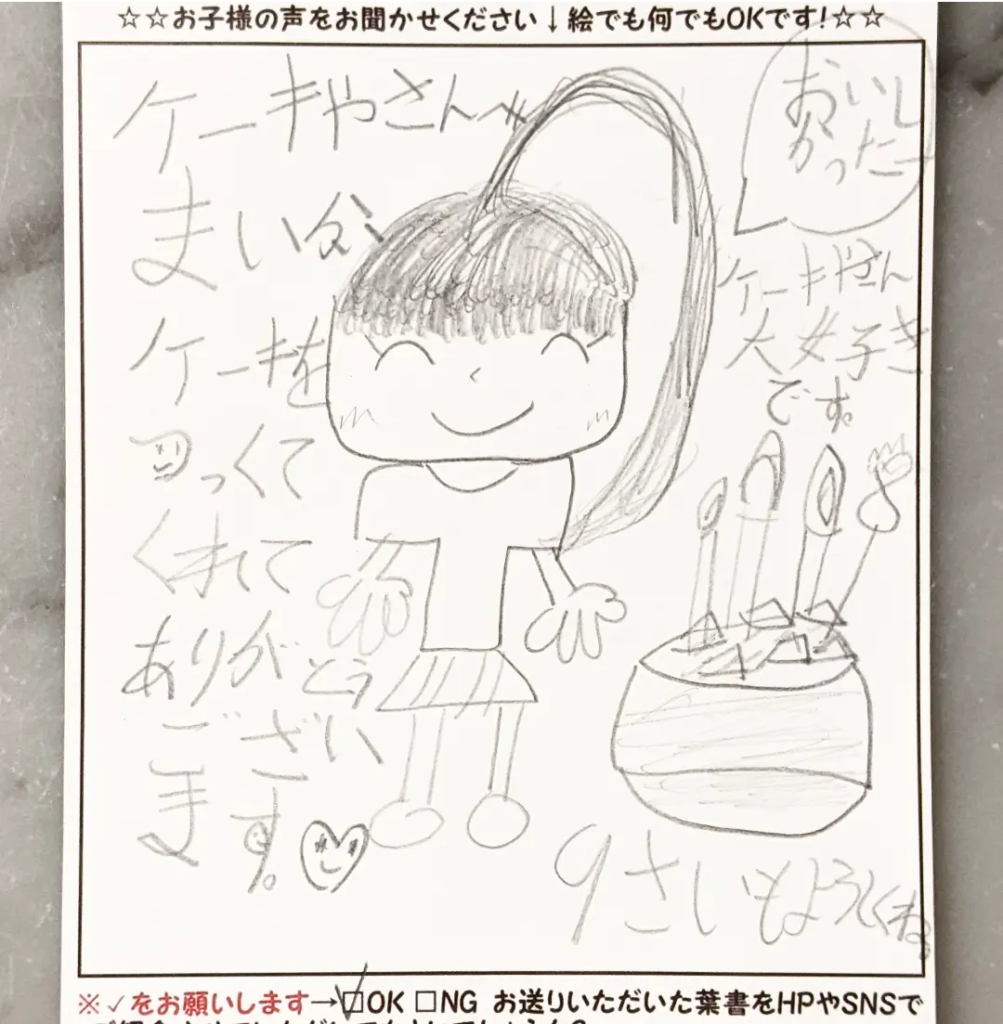 ☆☆お子様の声をお聞かせください↓絵でも何でもOKです!☆☆
ケーキやさんへ
まいかい
ケーキを
つくって
くれて
ありがとう
ござい
ます。
おいし
かったー
ケーキやさん
大好き
です。
9さいもよろしくね。
※✓をお願いします→☑OK □NG お送りいただいた葉書をHPやSNSで